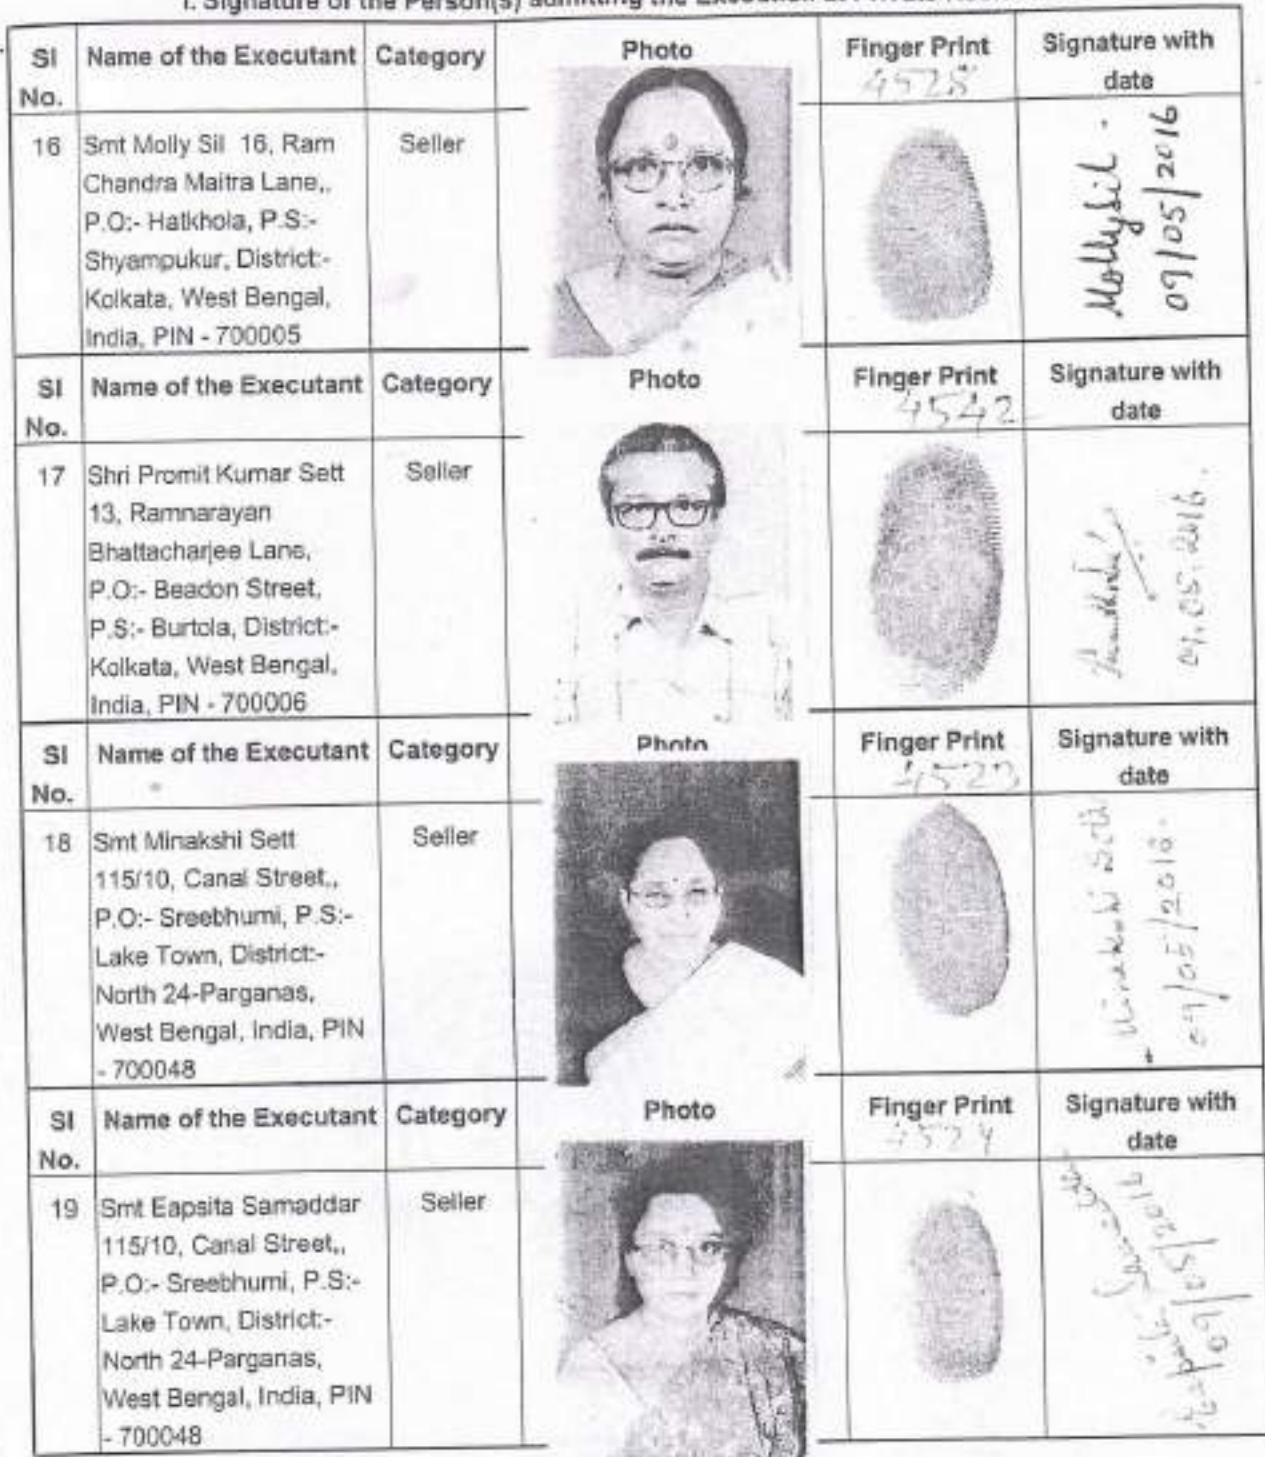 I. Signature of the Person(s) admitting the Execution at Private
SI No. Name of the Executant Category Photo Finger Print Signature with date
4528
16 Smt Molly Sil 16, Ram
Chandra Maitra Lane,,
P.O:- Hatkhola, P.S:-
Shyampukur, District:-
Kolkata, West Bengal,
India, PIN - 700005
Seller
Molly Sil.
09/05/2016
SI No. Name of the Executant Category Photo Finger Print Signature with date
4542
17 Shri Promit Kumar Sett
13, Ramnarayan
Bhattacharjee Lane,
P.O:- Beadon Street,
P.S:- Burtola, District:-
Kolkata, West Bengal,
India, PIN - 700006
Seller
09.05.2016.
SI No. Name of the Executant Category Photo Finger Print Signature with date
4523
18 Smt Minakshi Sett
115/10, Canal Street,,
P.O:- Sreebhumi, P.S:-
Lake Town, District:-
North 24-Parganas,
West Bengal, India, PIN
- 700048
Seller
Minakshi Sett
09/05/2016.
SI No. Name of the Executant Category Photo Finger Print Signature with date
4524
19 Smt Eapsita Samaddar
115/10, Canal Street,,
P.O:- Sreebhumi, P.S:-
Lake Town, District:-
North 24-Parganas,
West Bengal, India, PIN
- 700048
Seller
Eapsita Samaddar
09/05/2016